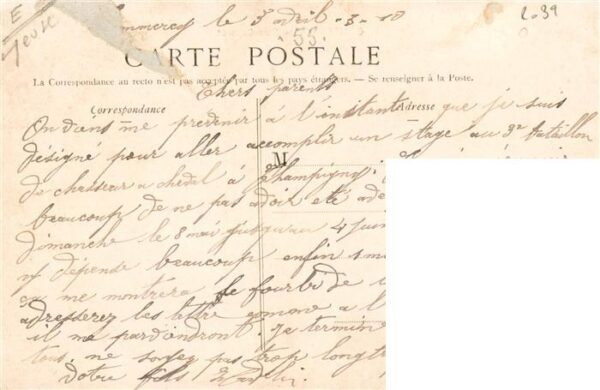 E
Meuse
2.39
Commercy le 3 avril
55
CARTE POSTALE
La Correspondance au recto n'est pas acceptée par tous les pays étrangers. — Se renseigner à la Poste.
Chers parents
Correspondance
Adresse
On viens me prévenir à l'instant que je suis
désigné pour aller accomplir un stage au bataillon
M
de chasseur a cheval à Champigny
beaucoup de ne pas avoir eté
dimanche le 8 mai jusqu'au 4 juin
dépende beaucoup enfin
me montrera le fourbi de
adresserez les lettre comme a l
il me pardondront. Je termine
tous, ne soyez pas trop longt
Votre fils